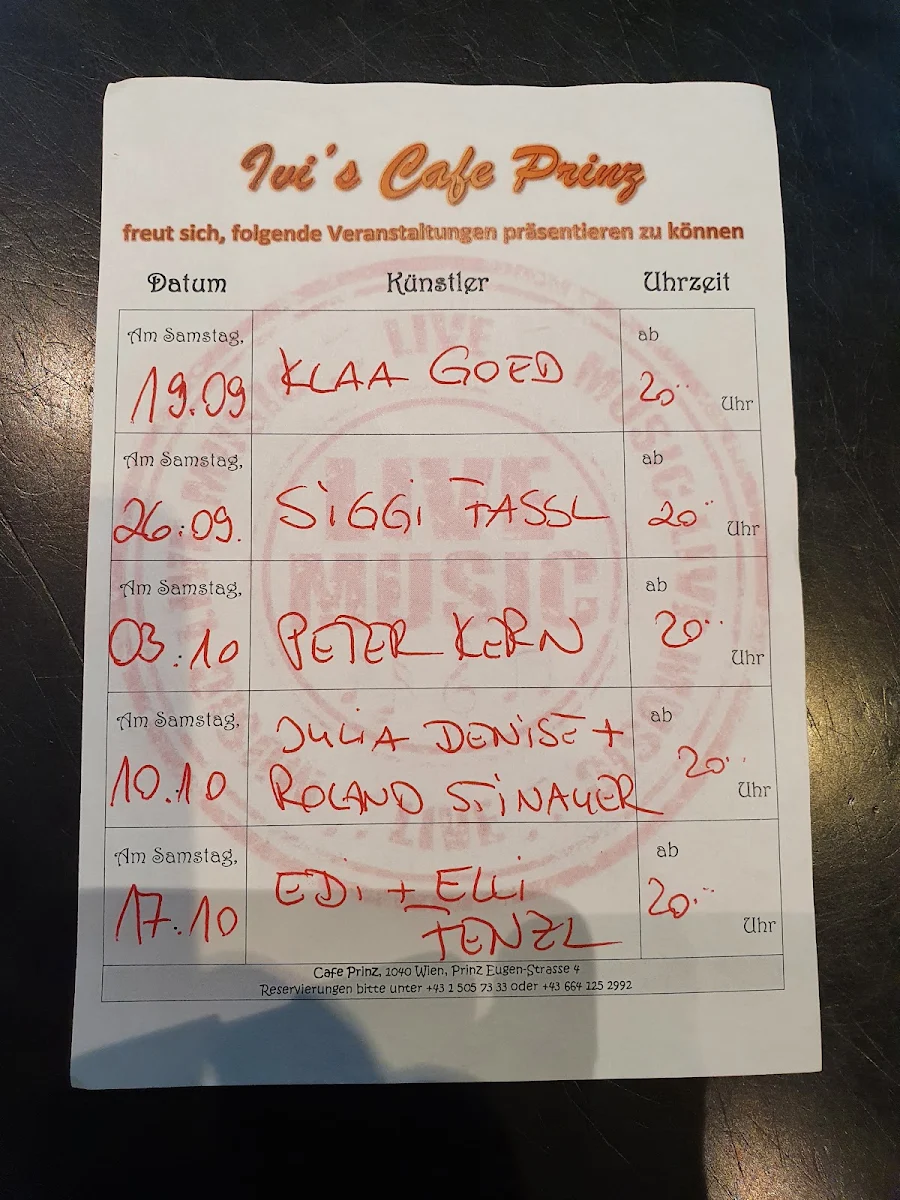 Ivi's Cafe Prinz
freut sich, folgende Veranstaltungen präsentieren zu können
Datum Künstler Uhrzeit
Am Samstag, ab
19.09 KLAA GOED 20·· Uhr
Am Samstag, ab
26.09. SIGGI FASSL 20·· Uhr
Am Samstag, ab
03.10 PETER KERN 20·· Uhr
Am Samstag, JULIA DENISE + ab
10.10 ROLAND STINAUER 20·· Uhr
Am Samstag, EDI + ELLI ab
17.10 FENZL 20·· Uhr
Cafe Prinz, 1040 Wien, Prinz Eugen-Strasse 4
Reservierungen bitte unter +43 1 505 73 33 oder +43 664 125 2992
LIVE
MUSIC